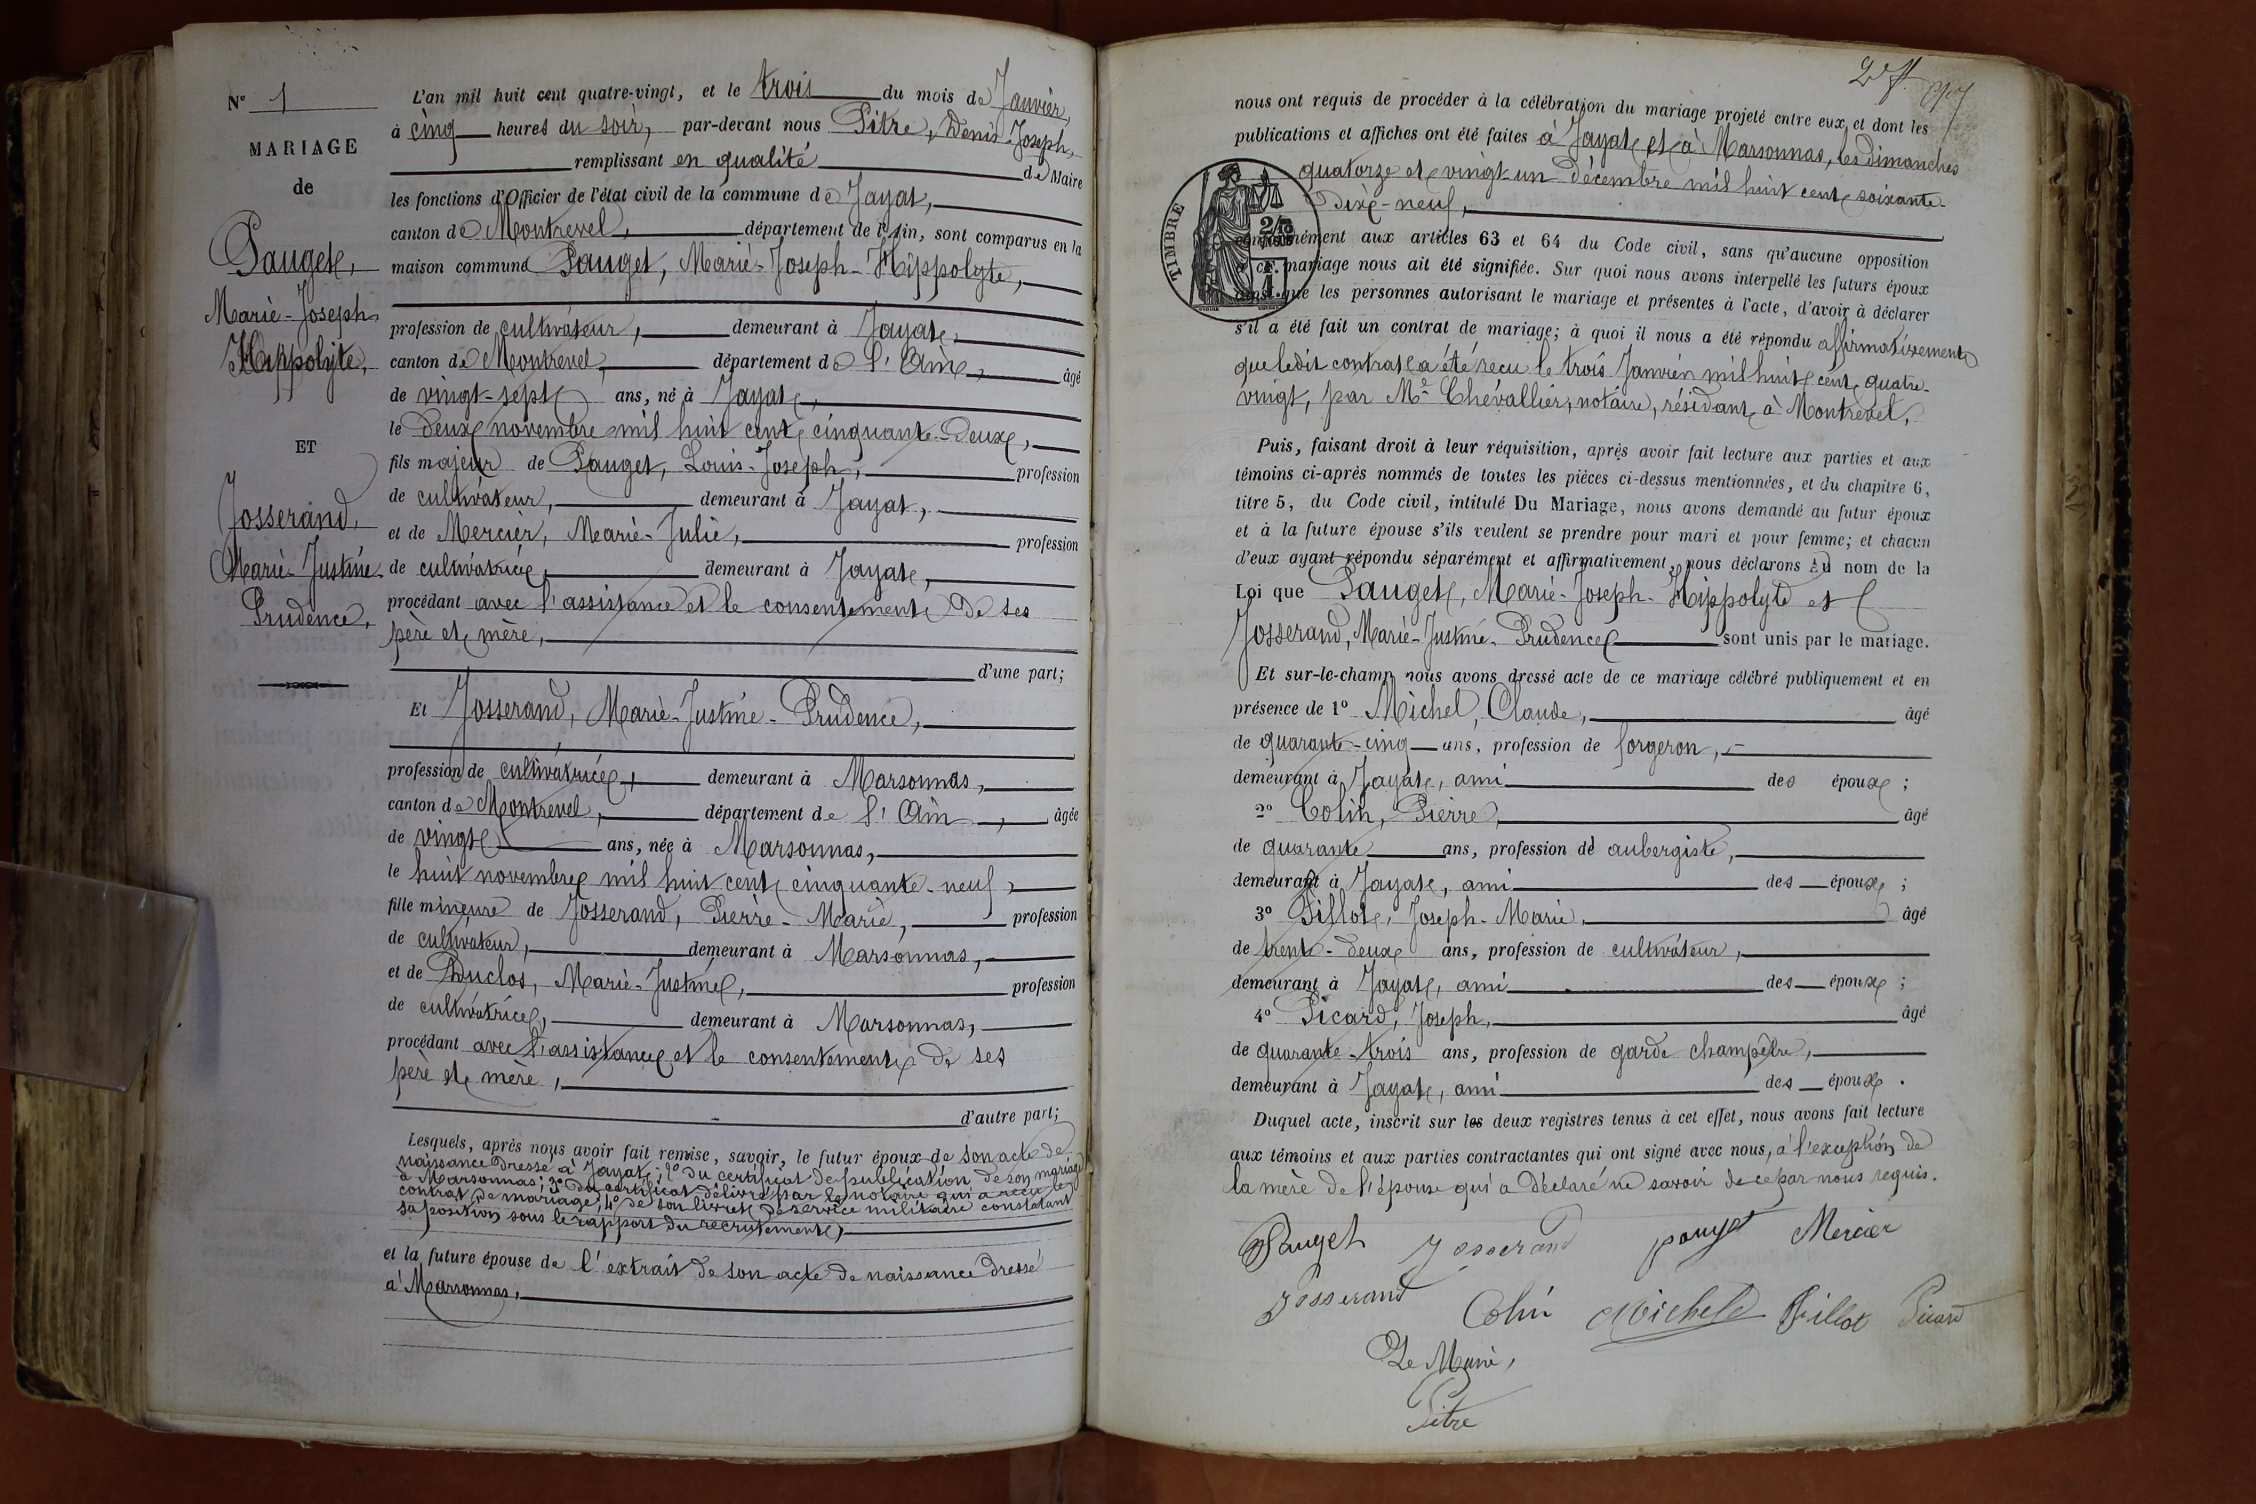 N° 1
MARIAGE
de
Pauget,
Marie-Joseph
Hippolyte,
ET
Josserand,
Marie-Justine-
Prudence,
L'an mil huit cent quatre-vingt, et le trois du mois de Janvier,
à cinq heures du soir, par-devant nous Pitre, Denis-Joseph,
remplissant en qualité de Maire
les fonctions d'Officier de l'état civil de la commune de Jayat,
canton de Montrevel, département de l'Ain, sont comparus en la
maison commune Pauget, Marie-Joseph-Hippolyte,
profession de cultivateur, demeurant à Jayat,
canton de Montrevel, département de l'Ain, âgé
de vingt-sept ans, né à Jayat,
le deux novembre mil huit cent cinquante-deux,
fils majeur de Pauget, Louis-Joseph, profession
de cultivateur, demeurant à Jayat,
et de Mercier, Marie-Julie, profession
de cultivatrice, demeurant à Jayat,
procédant avec l'assistance et le consentement de ses
père et mère,
d'une part;
Et Josserand, Marie-Justine-Prudence,
profession de cultivatrice, demeurant à Marsonnas,
canton de Montrevel, département de l'Ain, âgée
de vingt ans, née à Marsonnas,
le huit novembre mil huit cent cinquante-neuf,
fille mineure de Josserand, Pierre-Marie, profession
de cultivateur, demeurant à Marsonnas,
et de Duclos, Marie-Justine, profession
de cultivatrice, demeurant à Marsonnas,
procédant avec l'assistance et le consentement de ses
père et mère,
d'autre part;
Lesquels, après nous avoir fait remise, savoir, le futur époux de son acte de
naissance dressé à Jayat; 2° du certificat de publication de son mariage
à Marsonnas; 3° du certificat délivré par le notaire qui a reçu le
contrat de mariage; 4° de son livret de service militaire constatant
sa position sous le rapport du recrutement,
et la future épouse de l'extrait de son acte de naissance dressé
à Marsonnas,
nous ont requis de procéder à la célébration du mariage projeté entre eux et dont les
publications et affiches ont été faites à Jayat et à Marsonnas, les dimanches
quatorze et vingt-un décembre mil huit cent soixante-
dix-neuf,
TIMBRE
conformément aux articles 63 et 64 du Code civil, sans qu'aucune opposition
à ce mariage nous ait été signifiée. Sur quoi nous avons interpellé les futurs époux
ainsi que les personnes autorisant le mariage et présentes à l'acte, d'avoir à déclarer
s'il a été fait un contrat de mariage; à quoi il nous a été répondu affirmativement
que ledit contrat a été reçu le trois Janvier mil huit cent quatre-
vingt, par Me Chevallier, notaire, résidant à Montrevel,
Puis, faisant droit à leur réquisition, après avoir fait lecture aux parties et aux
témoins ci-après nommés de toutes les pièces ci-dessus mentionnées, et du chapitre 6,
titre 5, du Code civil, intitulé Du Mariage, nous avons demandé au futur époux
et à la future épouse s'ils veulent se prendre pour mari et pour femme; et chacun
d'eux ayant répondu séparément et affirmativement, nous déclarons au nom de la
Loi que Pauget, Marie-Joseph-Hippolyte et
Josserand, Marie-Justine-Prudence sont unis par le mariage.
Et sur-le-champ nous avons dressé acte de ce mariage célébré publiquement et en
présence de 1° Michel, Claude, âgé
de quarante-cinq ans, profession de forgeron,
demeurant à Jayat, ami des époux;
2° Colin, Pierre, âgé
de quarante ans, profession de aubergiste,
demeurant à Jayat, ami des époux;
3° Pillot, Joseph-Marie, âgé
de trente-deux ans, profession de cultivateur,
demeurant à Jayat, ami des époux;
4° Picard, Joseph, âgé
de quarante-trois ans, profession de garde champêtre,
demeurant à Jayat, ami des époux.
Duquel acte, inscrit sur les deux registres tenus à cet effet, nous avons fait lecture
aux témoins et aux parties contractantes qui ont signé avec nous, à l'exception de
la mère de l'épouse qui a déclaré ne savoir de ce par nous requis.
Pauget Josserand pauget Mercier
Josserand Colin Michel Pillot Picard
Le Maire,
Pitre